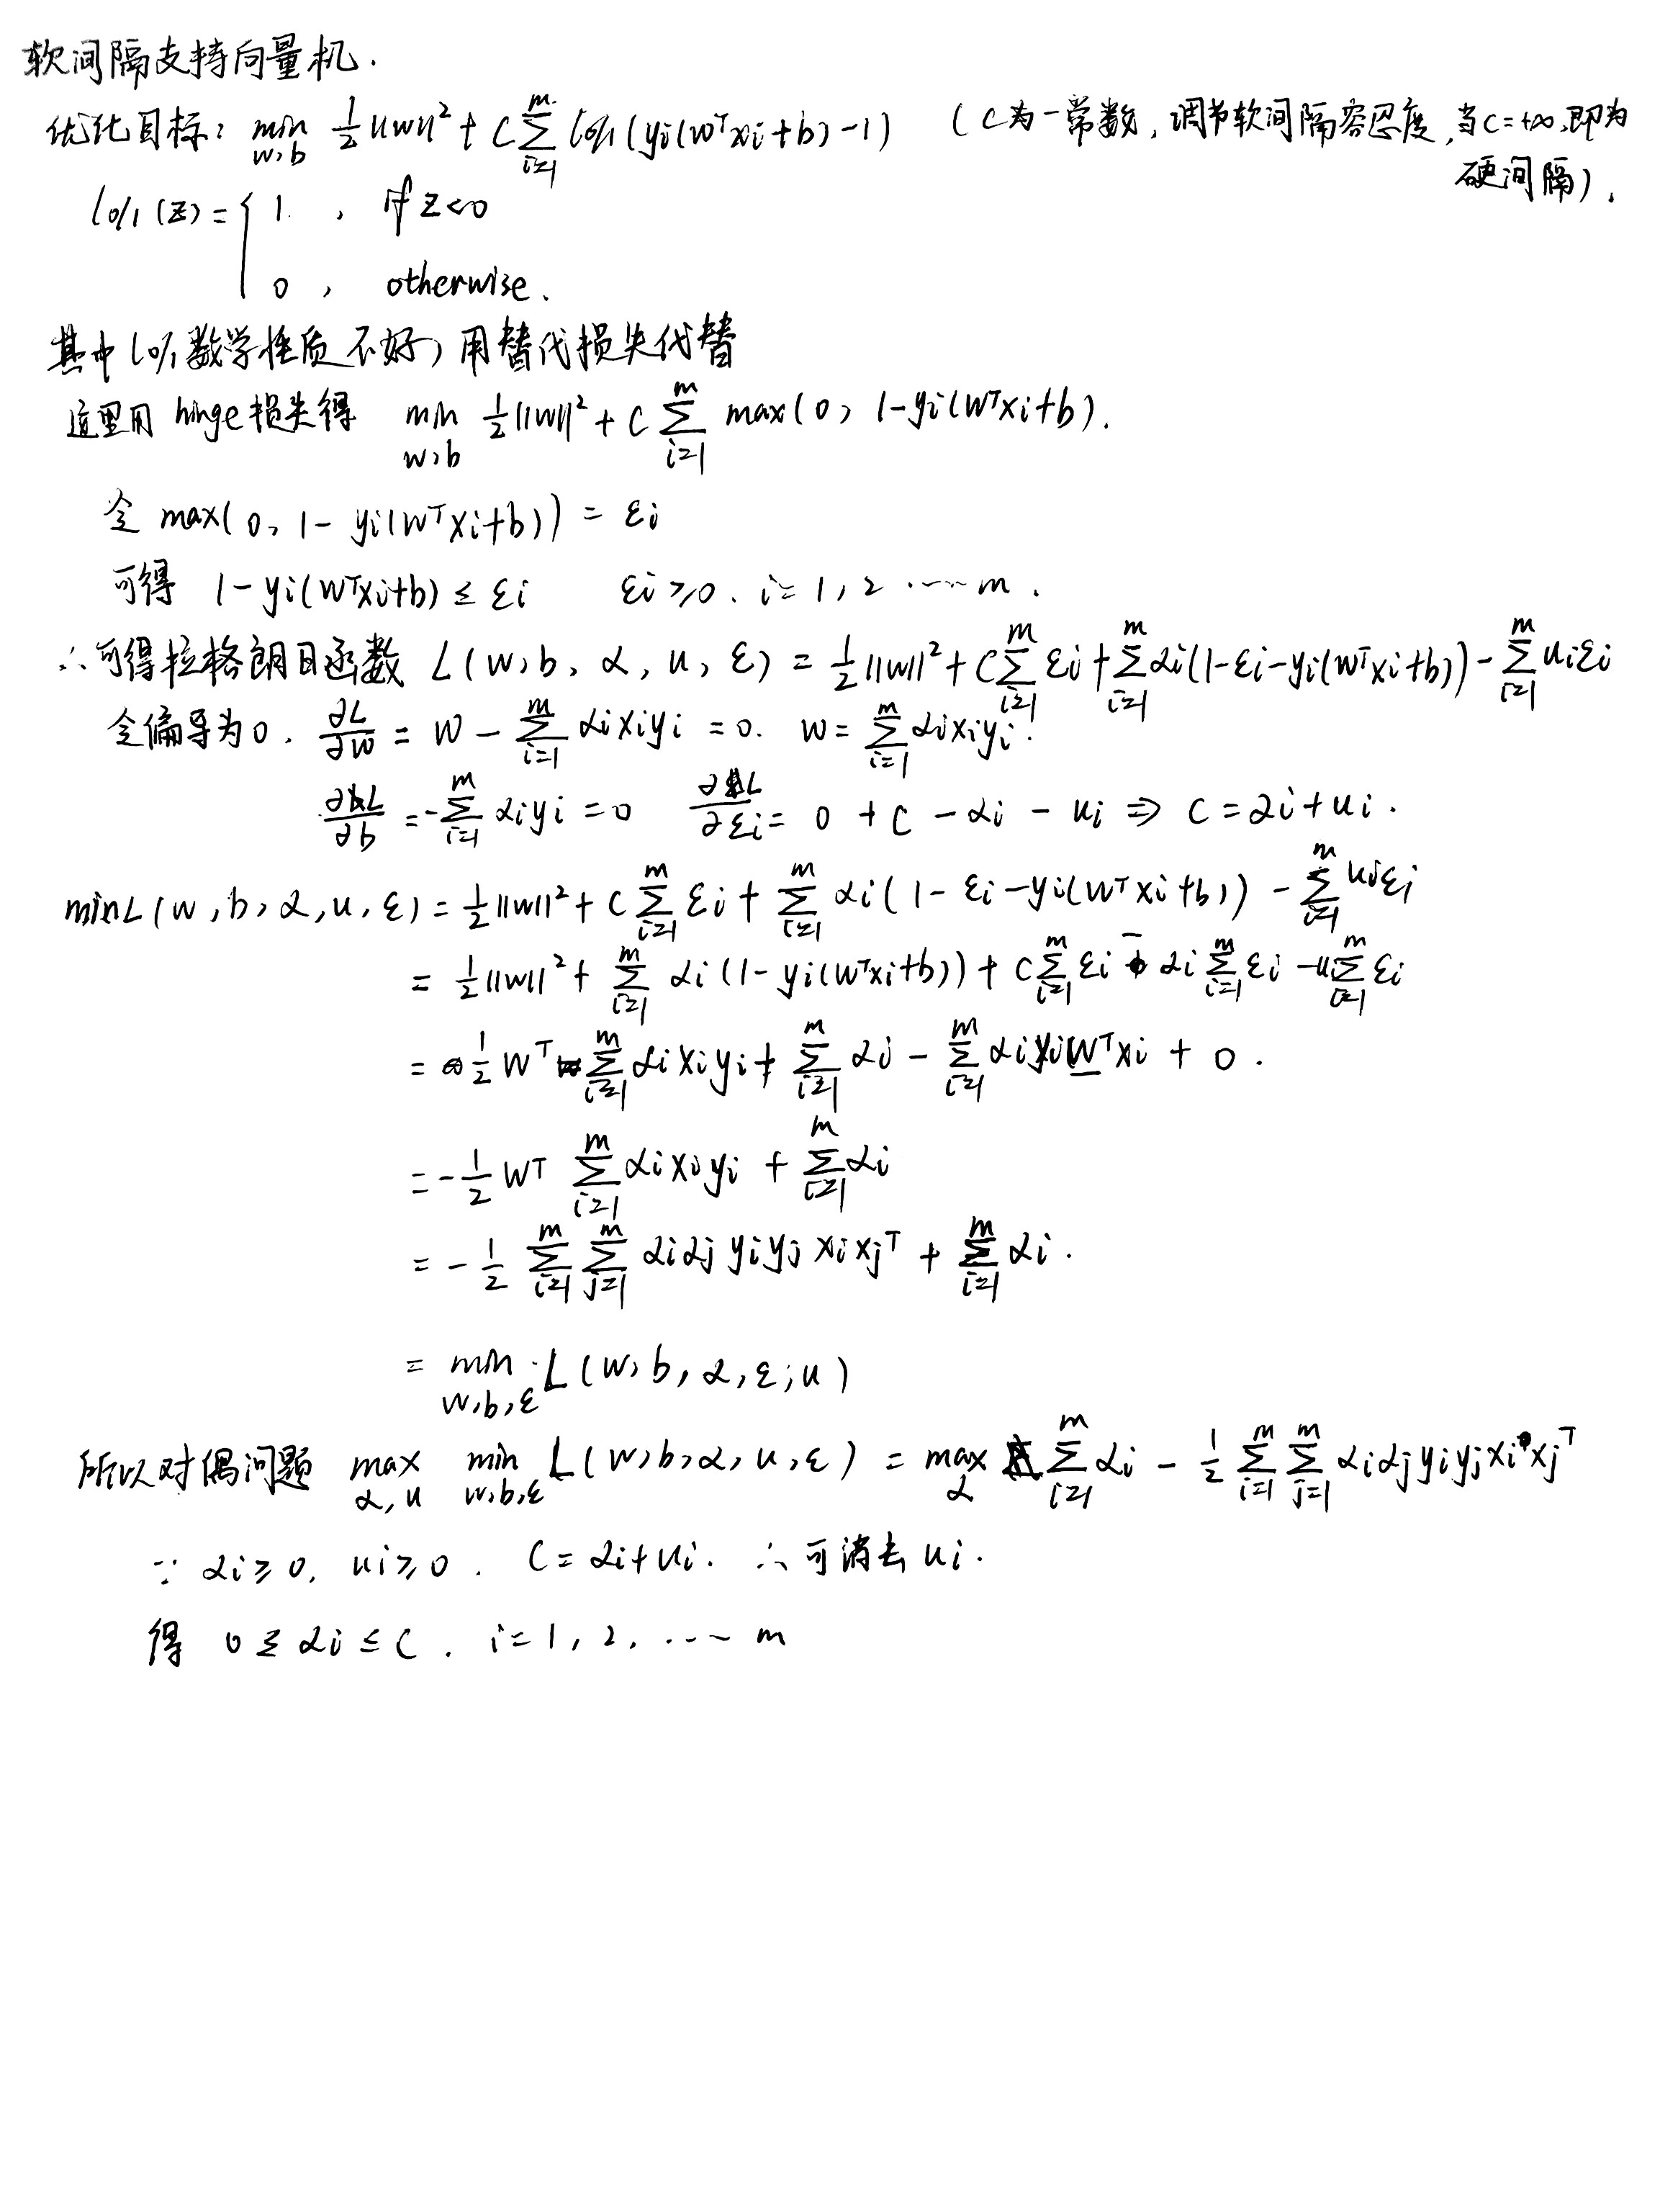 软间隔支持向量机.
优化目标: min_{w,b} 1/2 ||w||² + C Σ_{i=1}^{m} l0/1 (yi(wᵀxi+b) -1) (C为一常数, 调节软间隔容忍度, 当C=+∞, 即为
硬间隔).
l0/1 (z) = { 1. , if z<0
0 , otherwise.
其中 l0/1 数学性质不好, 用替代损失代替
这里用 hinge 损失得 min_{w,b} 1/2 ||w||² + C Σ_{i=1}^{m} max(0, 1-yi(wᵀxi+b).
令 max(0, 1- yi(wᵀxi+b)) = εi
可得 1-yi(wᵀxi+b) ≤ εi εi ≥0. i=1,2 ······ m.
∴可得拉格朗日函数 L(w,b, α, u, ε) = 1/2 ||w||² + C Σ_{i=1}^{m} εi + Σ_{i=1}^{m} αi(1-εi-yi(wᵀxi+b)) - Σ_{i=1}^{m} uiεi
令偏导为0. ∂L/∂w = w - Σ_{i=1}^{m} αixiyi = 0. w = Σ_{i=1}^{m} αixiyi.
∂L/∂b = - Σ_{i=1}^{m} αiyi = 0 ∂L/∂εi = 0 + C - αi - ui ⇒ C = αi+ui.
minL(w,b,α,u,ε) = 1/2 ||w||² + C Σ_{i=1}^{m} εi + Σ_{i=1}^{m} αi(1-εi-yi(wᵀxi+b)) - Σ_{i=1}^{m} uiεi
= 1/2 ||w||² + Σ_{i=1}^{m} αi(1-yi(wᵀxi+b)) + C Σ_{i=1}^{m} εi - αi Σ_{i=1}^{m} εi - ui Σ_{i=1}^{m} εi
= 1/2 wᵀ Σ_{i=1}^{m} αixiyi + Σ_{i=1}^{m} αi - Σ_{i=1}^{m} αiyiwᵀxi + 0.
= - 1/2 wᵀ Σ_{i=1}^{m} αixiyi + Σ_{i=1}^{m} αi
= - 1/2 Σ_{i=1}^{m} Σ_{j=1}^{m} αiαj yiyj xixjᵀ + Σ_{i=1}^{m} αi.
= min_{w,b,ε} L(w,b,α,ε,u)
所以对偶问题 max_{α,u} min_{w,b,ε} L(w,b,α,u,ε) = max_{α} Σ_{i=1}^{m} αi - 1/2 Σ_{i=1}^{m} Σ_{j=1}^{m} αiαjyiyjxixjᵀ
∵ αi≥0, ui≥0. C=αi+ui. ∴可消去ui.
得 0≤αi≤C. i=1,2, ···· m